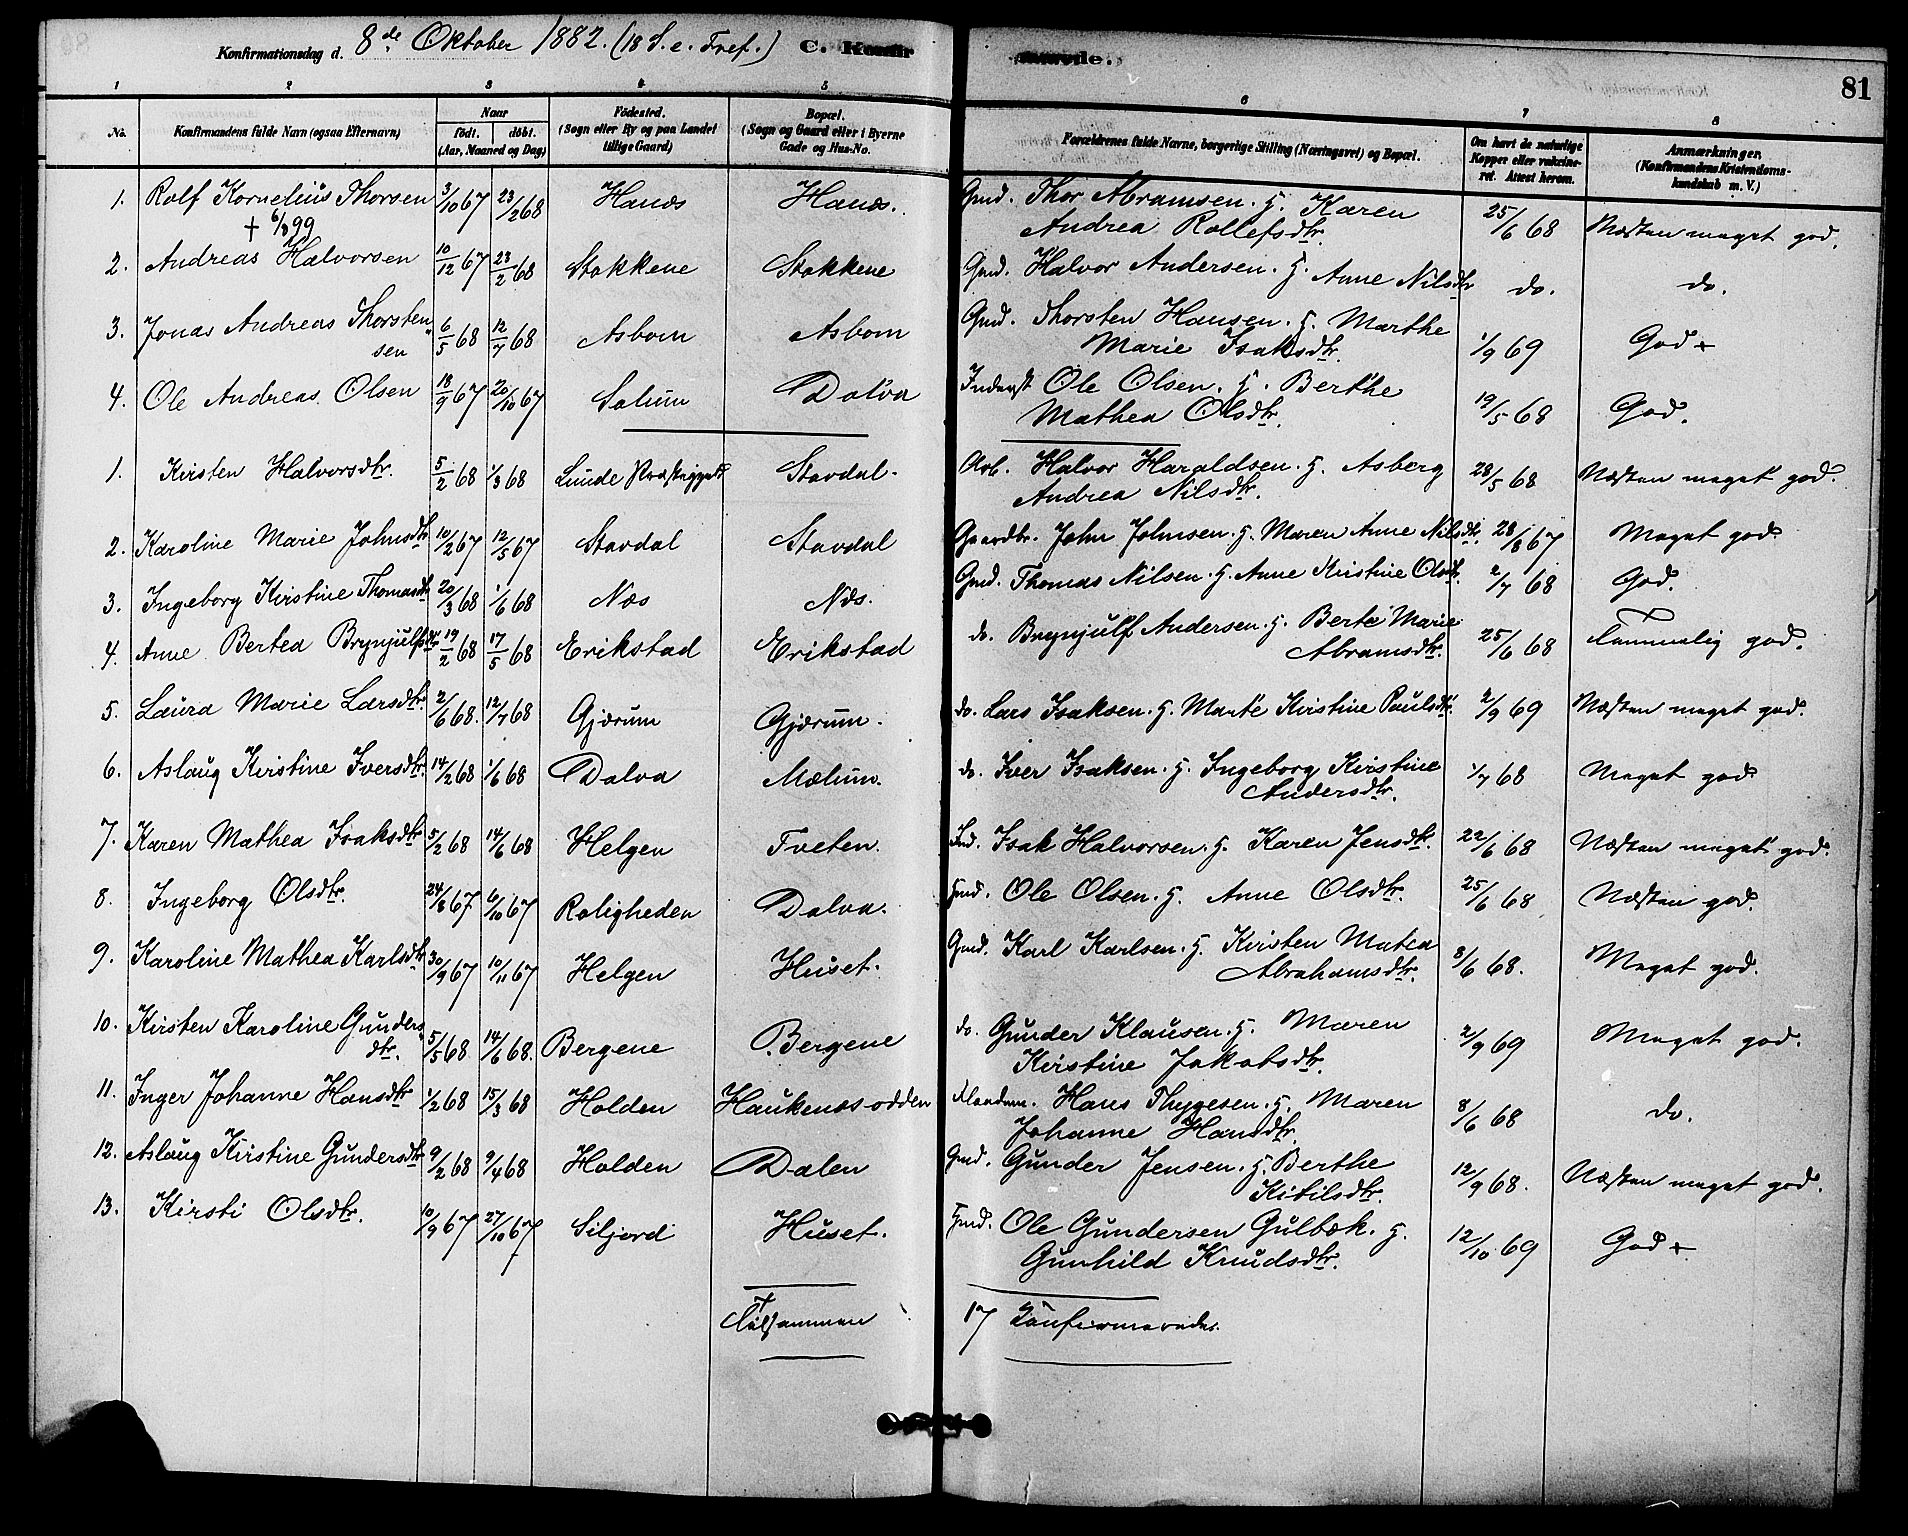 Konfirmationsdag d. 8de Oktober 1882. (18 S. e. Tref.) C. Konfirmerede. 81
1 2 3 4 5 6 7 8
No. Konfirmandens fulde Navn (ogsaa Efternavn) Naar født. døbt. (Aar, Maaned og Dag) Fødested. (Sogn eller By og paa Landet tillige Gaard) Bopæl. (Sogn og Gaard eller i Byerne Gade og Hus-No. Forældrenes fulde Navne, borgerlige Stilling (Næringsvei) og Bopæl. Om havt de naturlige Kopper eller vaccineret. Attest herom. Anmærkninger. (Konfirmandens Kristendomskundskab m. V.)
1. Rolf Kornelius Thorsen 3/10 67 23/2 68 Hanes Hanes. Gmd. Thor Abramsen. H. Karen
+ 6/8 99 Andrea Rollefsdtr. 25/6 68 Næsten meget god.
2. Andreas Halvorsen 10/12 67 23/2 68 Stokkene Stokkene Gmd. Halvor Andersen. H. Anne Nilsdtr do. do.
3. Jonas Andreas Thorsten„ 6/5 68 12/7 68 Asbom Asbom Gmd. Thorsten Hansen. H. Marthe
sen Marie Isaksdtr. 1/9 69 God +
4. Ole Andreas Olsen 18/9 67 20/10 67 Solum Dalva Inderst Ole Olsen. H. Berthe
Mathea Olsdtr. 19/5 68 God.
1. Kirsten Halvorsdtr. 5/2 68 1/3 68 Lunde Stavdal. Arb. Halvor Haraldsen. H. Asberg
Andrea Nilsdtr. 28/5 68 Næsten meget god.
2. Karoline Marie Johnsdtr 10/2 67 12/5 67 Stavdal Stavdal Gaardbr. John Johnsen. H. Maren Anne Nilsdtr. 28/8 67 Meget god
3. Ingeborg Kirstine Thomasdtr 20/3 68 1/6 68 Næs Næs. Gmd. Thomas Nilsen. H. Anne Kristine Olsdtr. 2/7 68 God.
4. Anne Bertea Brynjulfsdtr 19/2 68 17/5 68 Erikstad Erikstad do. Brynjulf Andersen. H. Berte Marie
Abramsdtr. 25/6 68 Temmelig god.
5. Laura Marie Larsdtr 2/6 68. 12/7 68 Gjærum Gjærum. do. Lars Isaksen. H. Marte Kirstine Paulsdtr. 2/9 69 Næsten meget god.
6. Aslaug Kirstine Iversdtr. 14/2 68 1/6 68 Dalva Mælum. do. Iver Isaksen. H. Ingeborg Kirstine
Andersdtr. 1/7 68 Meget god
7. Karen Mathea Isaksdtr 5/2 68 14/6 68 Helgen Tveten. Ind. Isak Halvorsen. H. Karen Jensdtr. 22/6 68 Næsten meget god.
8. Ingeborg Olsdtr. 24/8 67. 6/10 67 Roligheden Dalva. Gmd. Ole Olsen. H. Anne Olsdtr. 25/6 68 Næsten god.
9. Karoline Mathea Karlsdtr 30/9 67 10/11 67 Helgen Huset. Gmd. Karl Karlsen. H. Kirsten Matea
Abrahamsdtr. 8/6 68. Meget god.
10. Kirsten Karoline Gunders„ 5/5 68 14/6 68. Bergene Bergene do. Gunder Klausen. H. Maren
dtr. Kirstine Jakobsdtr. 2/9 69 Meget god.
11. Inger Johanne Hansdtr 1/2 68 15/3 68 Holden Haukenæs-odden Hans Thygesen. H. Maren
Johanne Hansdtr. 8/6 68 do.
12. Aslaug Kirstine Gundersdtr 9/2 68 9/4 68 Holden Dalen Gmd. Gunder Jensen. H. Berthe
Kitilsdtr. 12/9 68. Næsten meget god.
13. Kirsti Olsdtr. 10/9 67 27/10 67 Siljord Huset. Gmd. Ole Gundersen Gulbæk. H.
Gunhild Knudsdtr. 12/10 69 God +
Tilsammen 17 Konfirmerede.